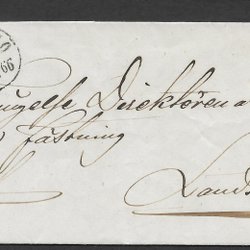 66
ngelse Direktören a
fästning
Land